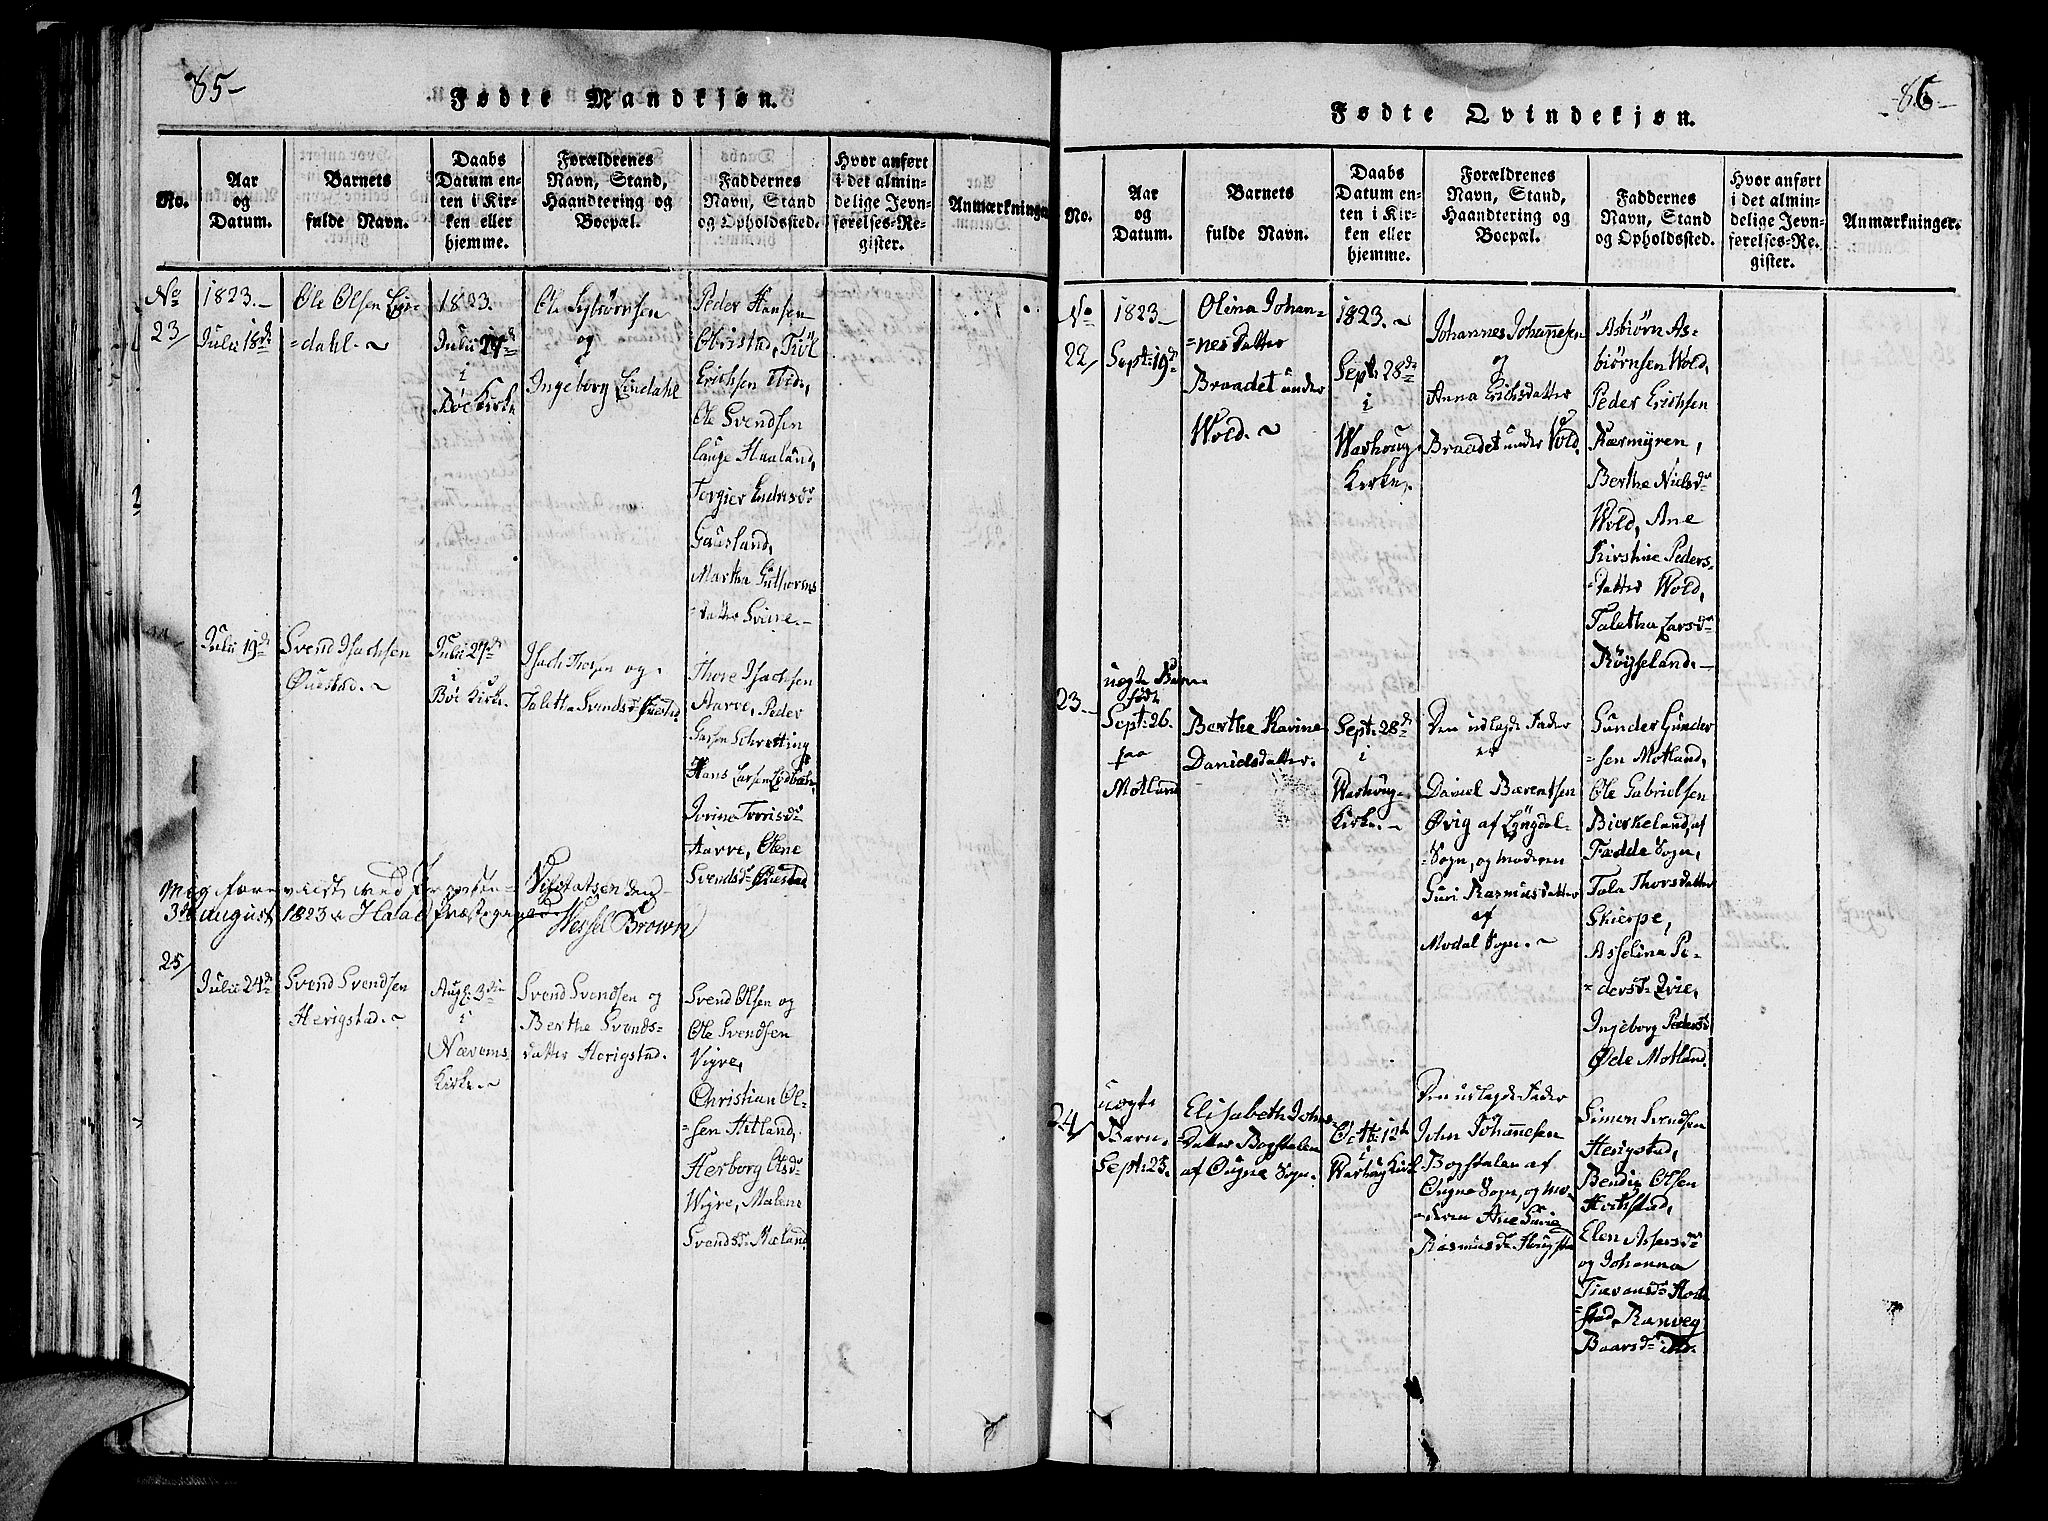 85-
Fødte Mandkjøn.
No.
Aar
og
Datum.
Barnets
fulde Navn.
Daabs
Datum en-
ten i Kir-
ken eller
hjemme.
Forældrenes
Navn, Stand,
Haandtering og
Boepæl.
Faddernes
Navn, Stand
og Opholdssted.
Hvor anført
i det almin-
delige Jevn-
førelses-Re-
gister.
Anmærkninger
No
23/
1823.-
Julii 18de
Ole Olsen
=dahl.~
1823.
Julii
i
Böe Kirke
Ole
og
Ingeborg
Peder Hansen
Obrestad,
Erichsen ibid.,
Ole Svendsen
lauge Haaland,
Gausland,
Martha Guthorms
=datter
Julii 19de
Svend Isachsen
Öuestad.~
Julii 27de
i
Böe Kirke.
Isach Thorsen og
Taletta Svendsd Öuestad
Thore Isachsen
Aarre, Peder
Hans Larsen
Aarre, Olene
Svendsd. Öuestad
3die august 1823
Wessel Brown
25/
Julii 24de
Svend Svendsen
Herigstad.~
Aug: 3die
i
Nærems
Kirke.~
Svend Svendsen og
Berthe Svends=
datter Herigstad.
Svend Olsen og
Ole Svendsen
Vigre,
Christian Ol-
=sen Hetland,
Herborg Olsdr
Wigre, Malene
Svendsd. Mæland
86-
Fødte Qvindekjøn.
No.
Aar
og
Datum.
Barnets
fulde Navn.
Daabs
Datum en-
ten i Kir-
ken eller
hjemme.
Forældrenes
Navn, Stand,
Haandtering og
Boepæl.
Faddernes
Navn, Stand
og Opholdssted.
Hvor anført
i det almin-
delige Jevn-
førelses-Re-
gister.
Anmærkninger.
No
22/
1823-
Sept: 19de
Olina Johan=
=nesdatter
Braadet under
Wold.~
1823.~
Sept: 28de
i
Warhoug
Kirke.
Johannes Johannesen
og
Anna Erichsdatter
Braadet under Vold.
Asbiørn As-
biørnsen Wold,
Peder Erichsen
Kærmyren,
Berthe Nielsdr
Wold, Ane
Kirstine Peders-
=datter Wold,
Taletha Larsdr
23.-
uægte Barn
født
Sept: 26.
paa
Motland
Berthe Karine
Danielsdatter.
Sept: 28de
i
Warhoug
Kirke.~
Den udlagde Fader
er
Daniel Bærentsen
Øvig af Lyngdal-
=Sogn, og moderen
Guri Rasmusdatter
af
Modal Sogn.~
Gunder Gunder
=sen Motland,
Ole Gabrielsen
Birkeland af
Fædde Sogn,
Tala Thorsdatter
Skierpe,
Asselina Pe-
=dersd. Qvie,
Ingeborg Pedersd
Øde Motland.
24/
uægte
Barn.
Sept: 23.
Elisabeth Johns
=datter Bogstalen
af Ougne Sogn.
Octb: 12te
i
Warhoug Kirk
Den udlagde Fader
John Johannesen
Bogstalen af
Ougne Sogn, og mo=
=deren Ane
Rasmusd.
Simon Svendsen
Herigstad,
Bendix Olsen
Elen Assersdr
og Johanna
=stad, Ranveg
Baarsd. ibid.